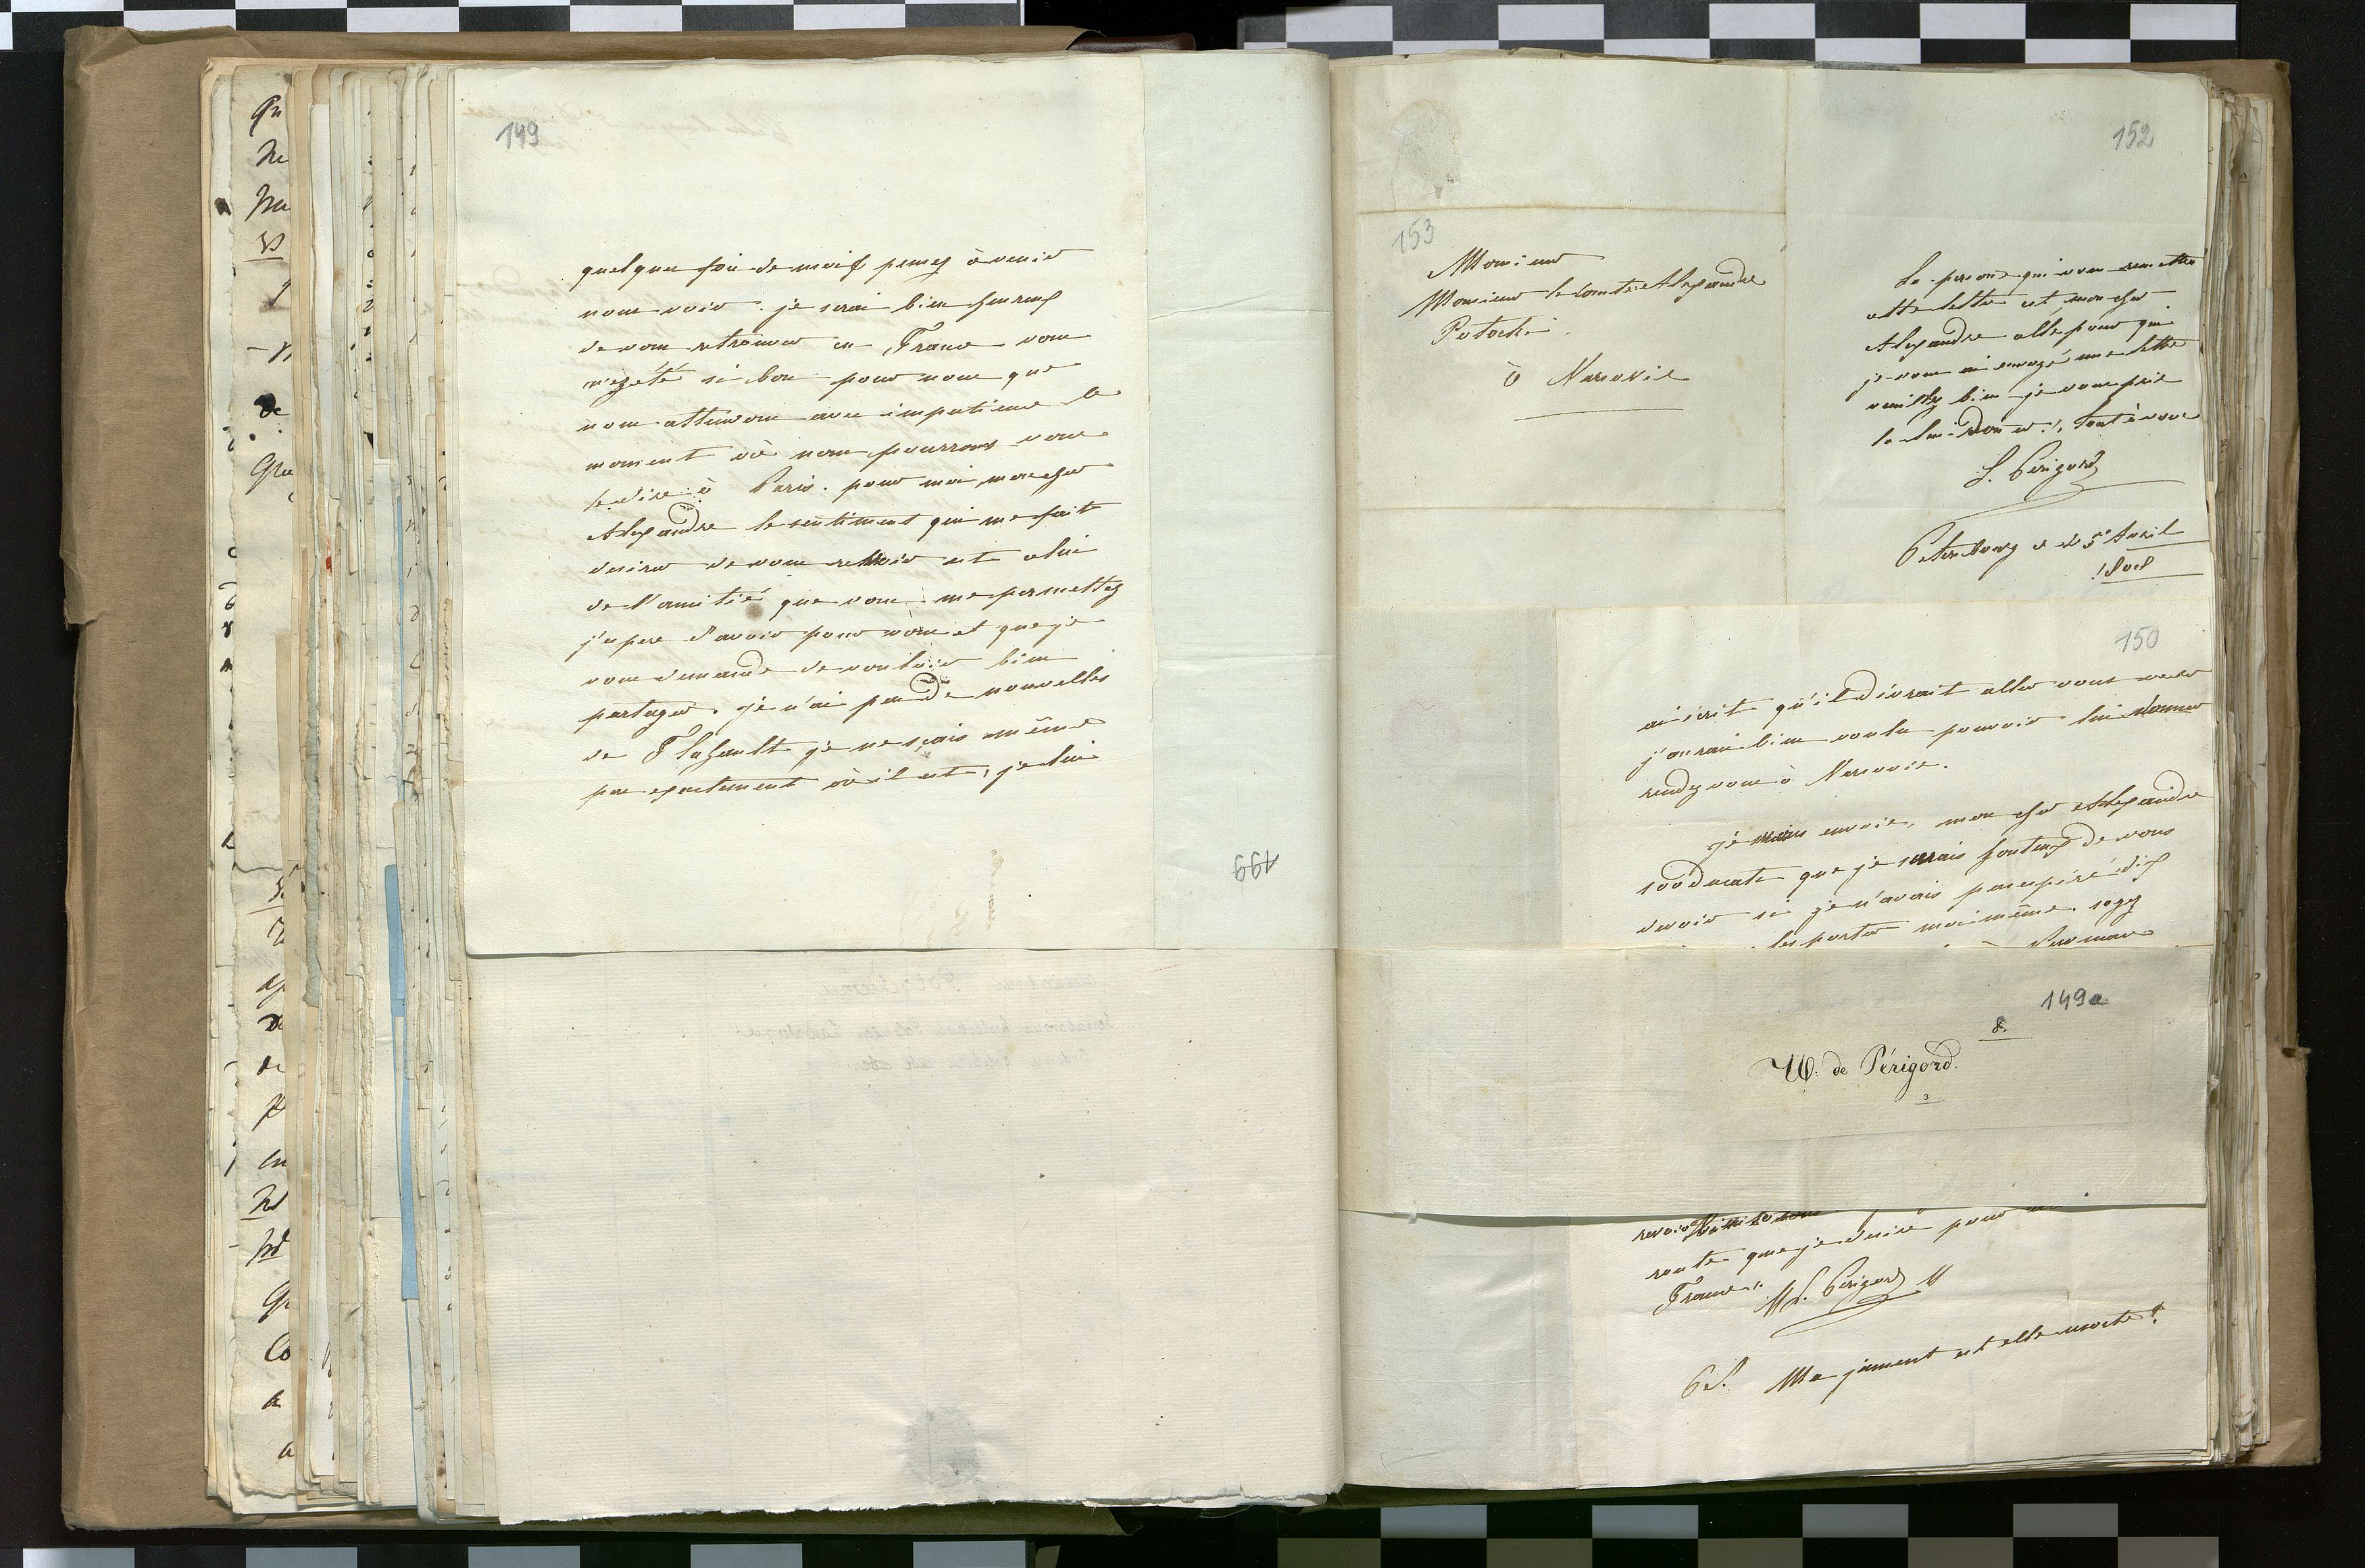 149
quelques fois de moi & pensez à venir
nous voir. je serai bien heureux
de vous retrouver en France vous
m'ezété si bon pour nous que
nous attendons avec impatience le
moment où nous pourrons vous
le dire à Paris. pour moi, mon cher
Alexandre le sentiment qui me fait
desirer de vous revoir est celui
de l'amitié que vous me permettez
j'espere d'avoir pour vous et que je
vous demande de vouloir bien
partager. je n'ai pas de nouvelles
de Flahault je ne sçais même
pas exactement où il est, je lui
199
153
Monsieur
Monsieur le comte Alexandre
Potocki
à Varsovie
152
La personne qui vous remettra
cette lettre est, mon cher
Alexandre celle pour qui
je vous ai envoyé une lettre
veuillez bien je vous prie
la lui donner. tout à vous
L. Périgord
Petersbourg ce 25 Avril
1808
150
ai écrit qu'il devrait aller vous voir
j'aurais bien voulu pouvoir lui donner
rendez vous à Varsovie.
je vous envoie, mon cher Alexandre
100 ducats que je serais honteux de vous
devoir si je n'avais pas espéré
les porter moi même. soyez
149a
8.
W. de Périgord.
3
route que je desire pour
France.
L. Périgord
P.S. Ma jument est elle morte?